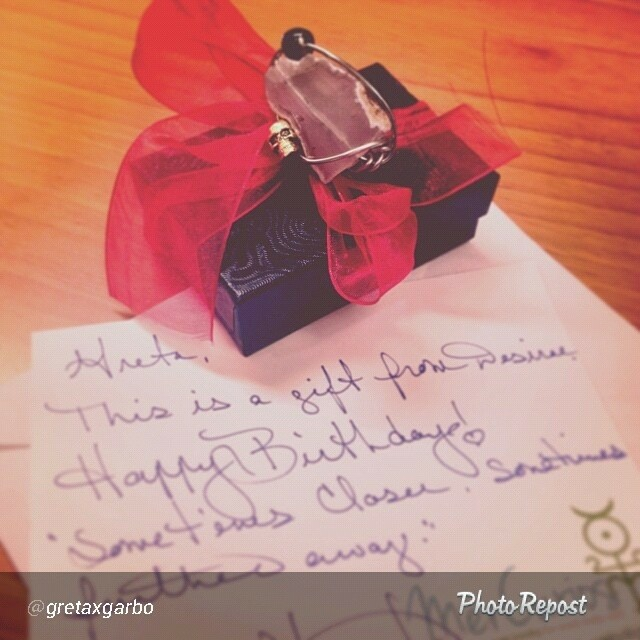 Greta,
This is a gift from Desiree.
Happy Birthday! ♡
"Sometimes closer, sometimes
further away."
@gretaxgarbo
Photo Repost